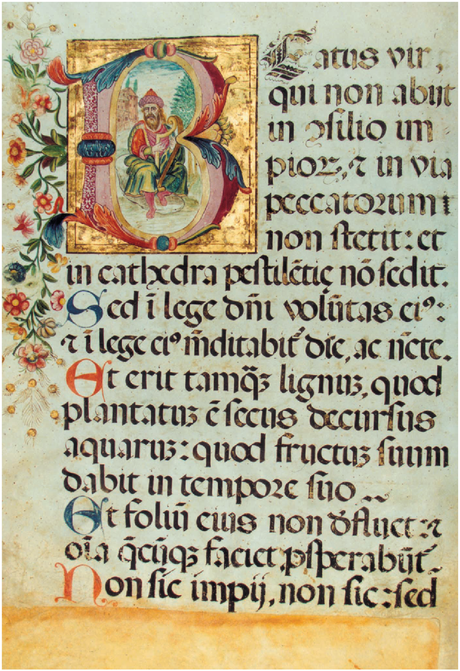 BEatus vir,
qui non abijt
in ↄsilio im
pioꝝ, ⁊ in via
peccatorum
non stetit: et
in cathedra pestilētię nō sedit.
Sed ī lege dn̄i volūtas eiꝰ:
⁊ ī lege eiꝰ m̄ditabit᷑ die, ac nc̄te.
Et erit tamqꝫ lignuꝫ, quod
plantatuꝫ ē secus decursus
aquaruꝫ: quod fructuꝫ suum
dabit in tempore suo ..
Et foliū eius non d̄fluet: ⁊
oīa q̄cūqꝫ faciet, ꝓsperabūt᷑.
Non sic impij, non sic: sed